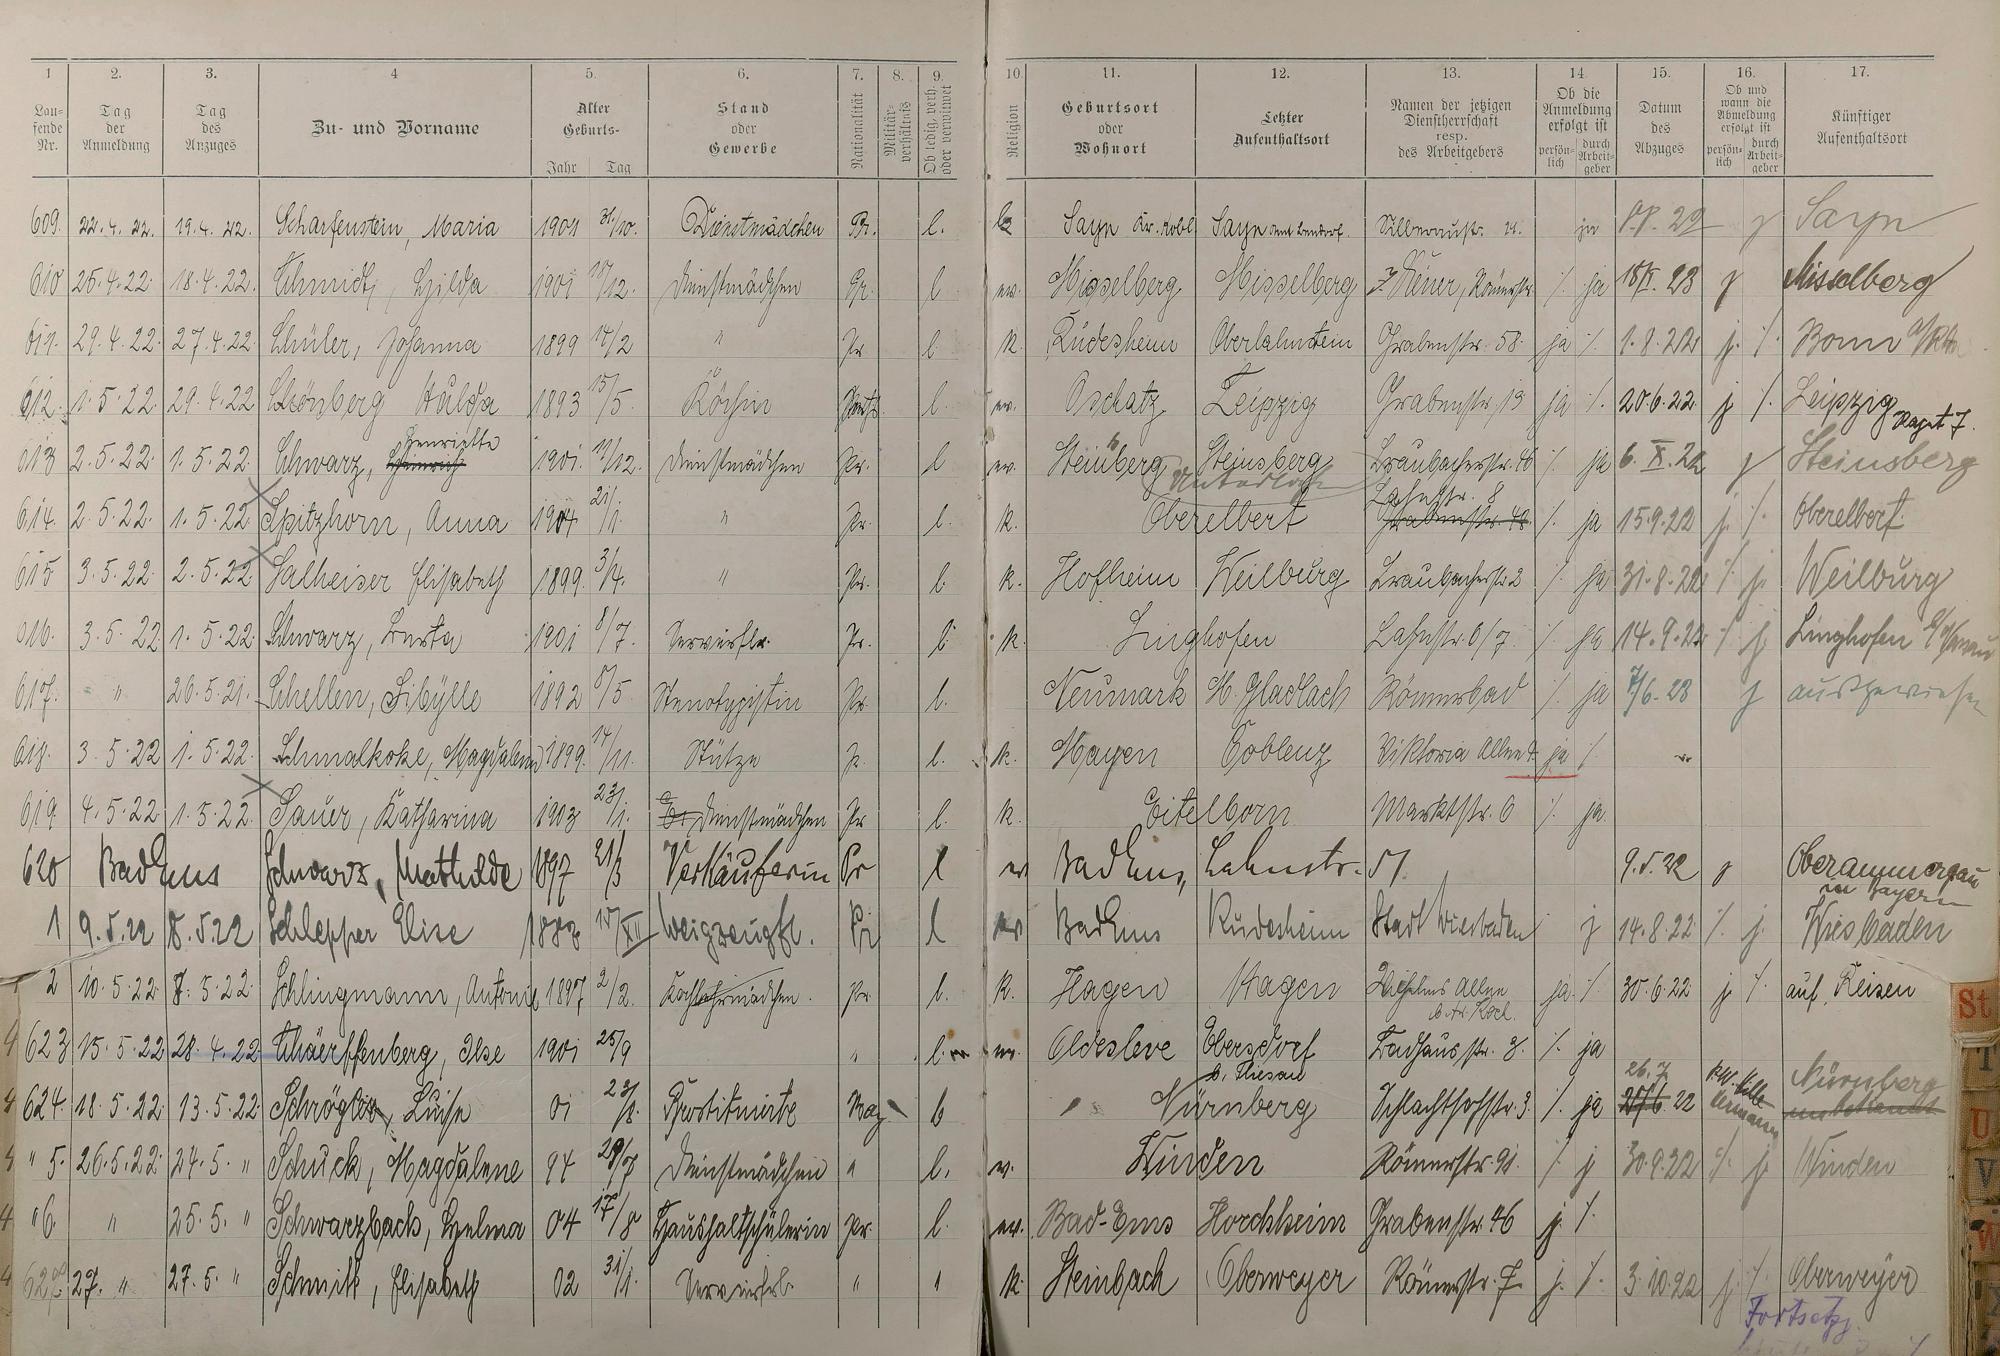 1 2. 3. 4 5. 6. 7. 8. 9. 10. 11. 12. 13. 14 15. 16. 17.
Lau-fende Nr. Tag der Anmeldung Tag des Anzuges Zu- und Vorname Alter Geburts- Jahr Tag Stand oder Gewerbe Nationalität Militär-verhältnis Ob ledig, verh. oder verwitwet Religion Geburtsort oder Wohnort Letzter Aufenthaltsort Namen der jetzigen Dienstherrschaft resp. des Arbeitgebers Ob die Anmeldung erfolgt ist persön-lich durch Arbeit-geber Datum des Abzuges Ob und wann die Abmeldung erfolgt ist persön-lich durch Arbeit-geber Künftiger Aufenthaltsort
609. 22.4.22. 19.4.22. Scharfenstein, Maria 1901 31/10. Dienstmädchen Pr. l. Sayn Kr. Kobl Sayn Silberaustr. ja Sayn
610 25.4.22. 18.4.22. Schmidt, Hilda 1901 /12. Dienstmädchen Pr. l ev. Misselberg Misselberg Römerstr. /. ja 23 j Misselberg
611. 29.4.22. 27.4.22 Schüler, Johanna 1899 /2 " Pr l. k. Rüdesheim Oberlahnstein Grabenstr. 58. ja /. 1.8.22 j. /. Bonn a/Rhn
612. 1.5.22. 29.4.22 Schönberg Hulda 1893 15/5. Köchin l. ev. Oschatz Leipzig Grabenstr. 19 ja /. 20.6.22 j /. Leipzig
613 2.5.22. 1.5.22. Schwarz, Henriette 1901. /12. Dienstmädchen Pr. l ev. Steinsberg Steinsberg Braubacherstr. 46 /. ja 6. X. 22 j Steinsberg
614. 2.5.22. 1.5.22 Spitzhorn, Anna 1904 21/1. " Pr. l. k. Oberelbert Lahnstr. 8 /. ja 15.9.22 j. /. Oberelbert
615 3.5.22. 2.5.22 Salheiser Elisabeth 1899. 3/4. " Pr. l. k. Hofheim Weilburg Braubacherstr. 2 /. ja 31.8.22 /. j. Weilburg
616. 3.5.22 1.5.22. Schwarz, Berta 1901 8/7. Servierfr. Pr. l k. Linghofen Lahnstr. 6/7 /. ja 14.9.22 /. j. Linghofen
617. " 26.5.21. Schellen, Sibylle 1892 /5. Stenotypistin Pr. l. Neumark M. Gladbach Römerbad /. ja 7/6.23 j ausgewiesen
618. 3.5.22 1.5.22. Schmalkoke, Magdalena 1899. 14/11. Stütze Pr. l. k. Mayen Coblenz Viktoria Allee ja /.
619 4.5.22 1.5.22. Sauer, Katharina 1903 23/1. Dienstmädchen Pr l. k. Eitelborn Marktstr. 6 /. ja.
620 Bad Ems Schwarz, Mathilde 1897 21/3 Verkäuferin Pr l ev Bad Ems, Lahnstr. 51. 9.5.22 j Oberammergau in Bayern
1 9.5.22 8.5.22 Schlepper Elise 15/XII Weißzeugfl. Pr l ev Bad Ems Rüdesheim Stadt Wiesbaden j 14.8.22 /. j. Wiesbaden
2 10.5.22 7.5.22. Schlingmann, Antonie 1897 2/2. Kochlehrmädchen. Pr. l. k. Hagen Hagen Wilhelms Allee ja. /. 30.6.22 j. /. auf Reisen
623 15.5.22 28.4.22 Schärffenberg, Ilse 1901 25/9 " l. ev. Oldesleve Ebersdorf b. Riesau Badhausstr. 3. /. ja
624. 18.5.22 13.5.22 Schrögler, Luise 01 23/8. Prostituierte Bay l Nürnberg Schlachthofstr. 3. /. ja 26.7. 22 Nürnberg
" 5. 26.5.22. 24.5. " Schuck, Magdalene 94 29/7 Dienstmädchen " l. ev. Winden Römerstr. 91. /. j 30.9.22 /. j. Winden
" 6. " 25.5. " Schwarzbach, Helma 04 17/8 Haushaltschülerin Pr. l. ev. Bad-Ems Horchheim Grabenstr. 46 j. /.
627. 27. " 27.5. " Schmitt, Elisabeth 02 31/1. Servierfrl. " " k. Steinbach Oberweyer Römerstr. 7 j. /. 3.10.22 j. /. Oberweyer
Fortsetzg.
St
T
U
V
W